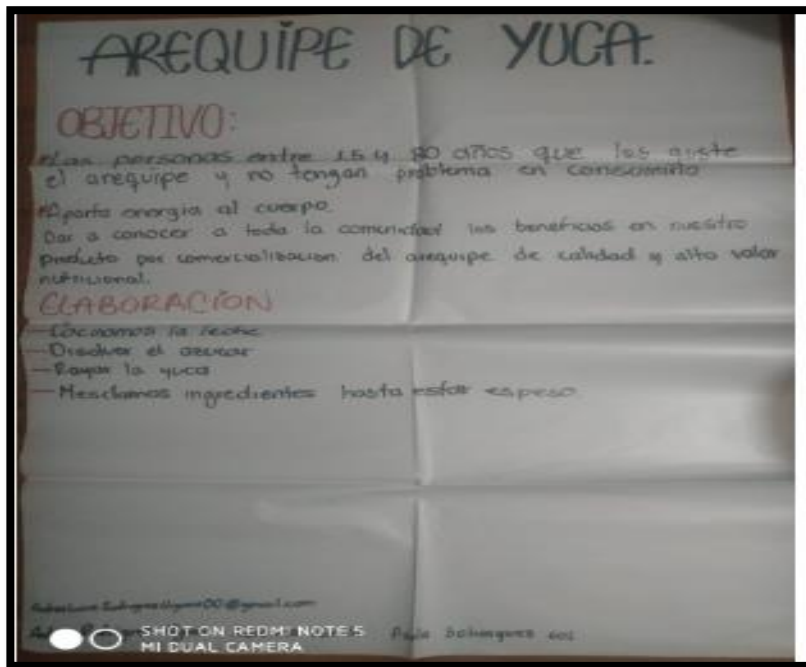 AREQUIPE DE YUCA.
OBJETIVO:
Las personas entre 15 y 80 años que les guste
el arequipe y no tengan problema en consumirlo
Aporta energia al cuerpo.
Dar a conocer a toda la comunidad los beneficios en nuestro
producto por comercialisacion del arequipe de calidad y alto valor
nutricional.
ELABORACIÓN
- Cocinamos la leche
- Disolver el azucar
- Rayar la yuca
- Mesclamos ingredientes hasta estar espeso.
@gmail.com
SHOT ON REDMI NOTE 5
MI DUAL CAMERA